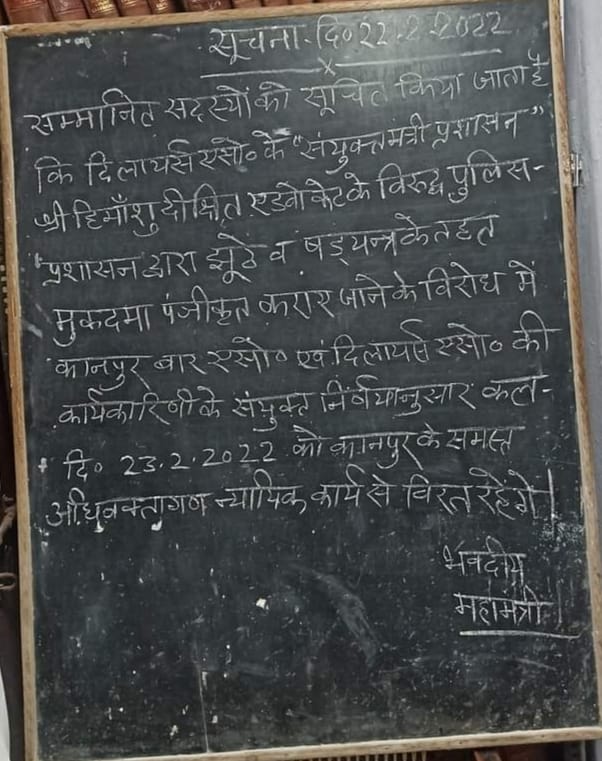 सूचना दि० 22.2.2022
x
सम्मानित सदस्यों को सूचित किया जाता है
कि दि लायर्स एसो० के "संयुक्त मंत्री प्रशासन"
श्री हिमाँशु दीक्षित एडवोकेट के विरूद्ध पुलिस-
प्रशासन द्वारा झूठे व षड्यन्त्र के तहत
मुकदमा पंजीकृत कराए जाने के विरोध में
कानपुर बार एसो० एवं दि लायर्स एसो० की
कार्यकारिणी के संयुक्त निर्णयानुसार कल-
दि० 23.2.2022 को कानपुर के समस्त
अधिवक्तागण न्यायिक कार्य से विरत रहेंगे।
भवदीय
महामंत्री।